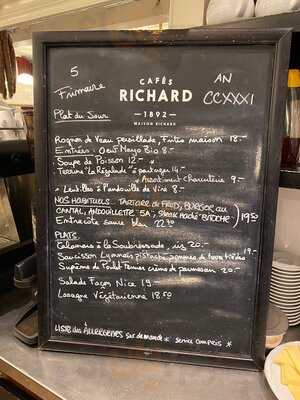 5
Frimaire
CAFÉS
RICHARD
1892
MAISON RICHARD
AN
CCXXXI
Plat du Jour
Rognon de Veau persillade, Frites maison 18.-
Entrées: Oeuf Mayo Bio 8.-
Soupe de Poisson 12 -
Terrine "La Régalade" à partager 14 -
" Assortiment Charcuterie 9 -
+ Lentilles à l'andouille de Vire 8 -
NOS HABITUELS: TARTARE du FRED, BURGER au
CANTAL, ANDOUILLETTE "5A", STEAK HACHÉ "BITOCHE" 19.50
Entrecôte sauce bleu 22.90
PLATS.
Calamars à la Soubressade, riz 20.-
Saucisson Lyonnais pistaché pommes de terre tièdes 19.-
Suprême de Poulet Fermier crème de parmesan 20.-
Salade Façon Nice 19 -
Lasagne Végétarienne 18.50
LISTE des ALLERGÈNES sur demande * service compris *